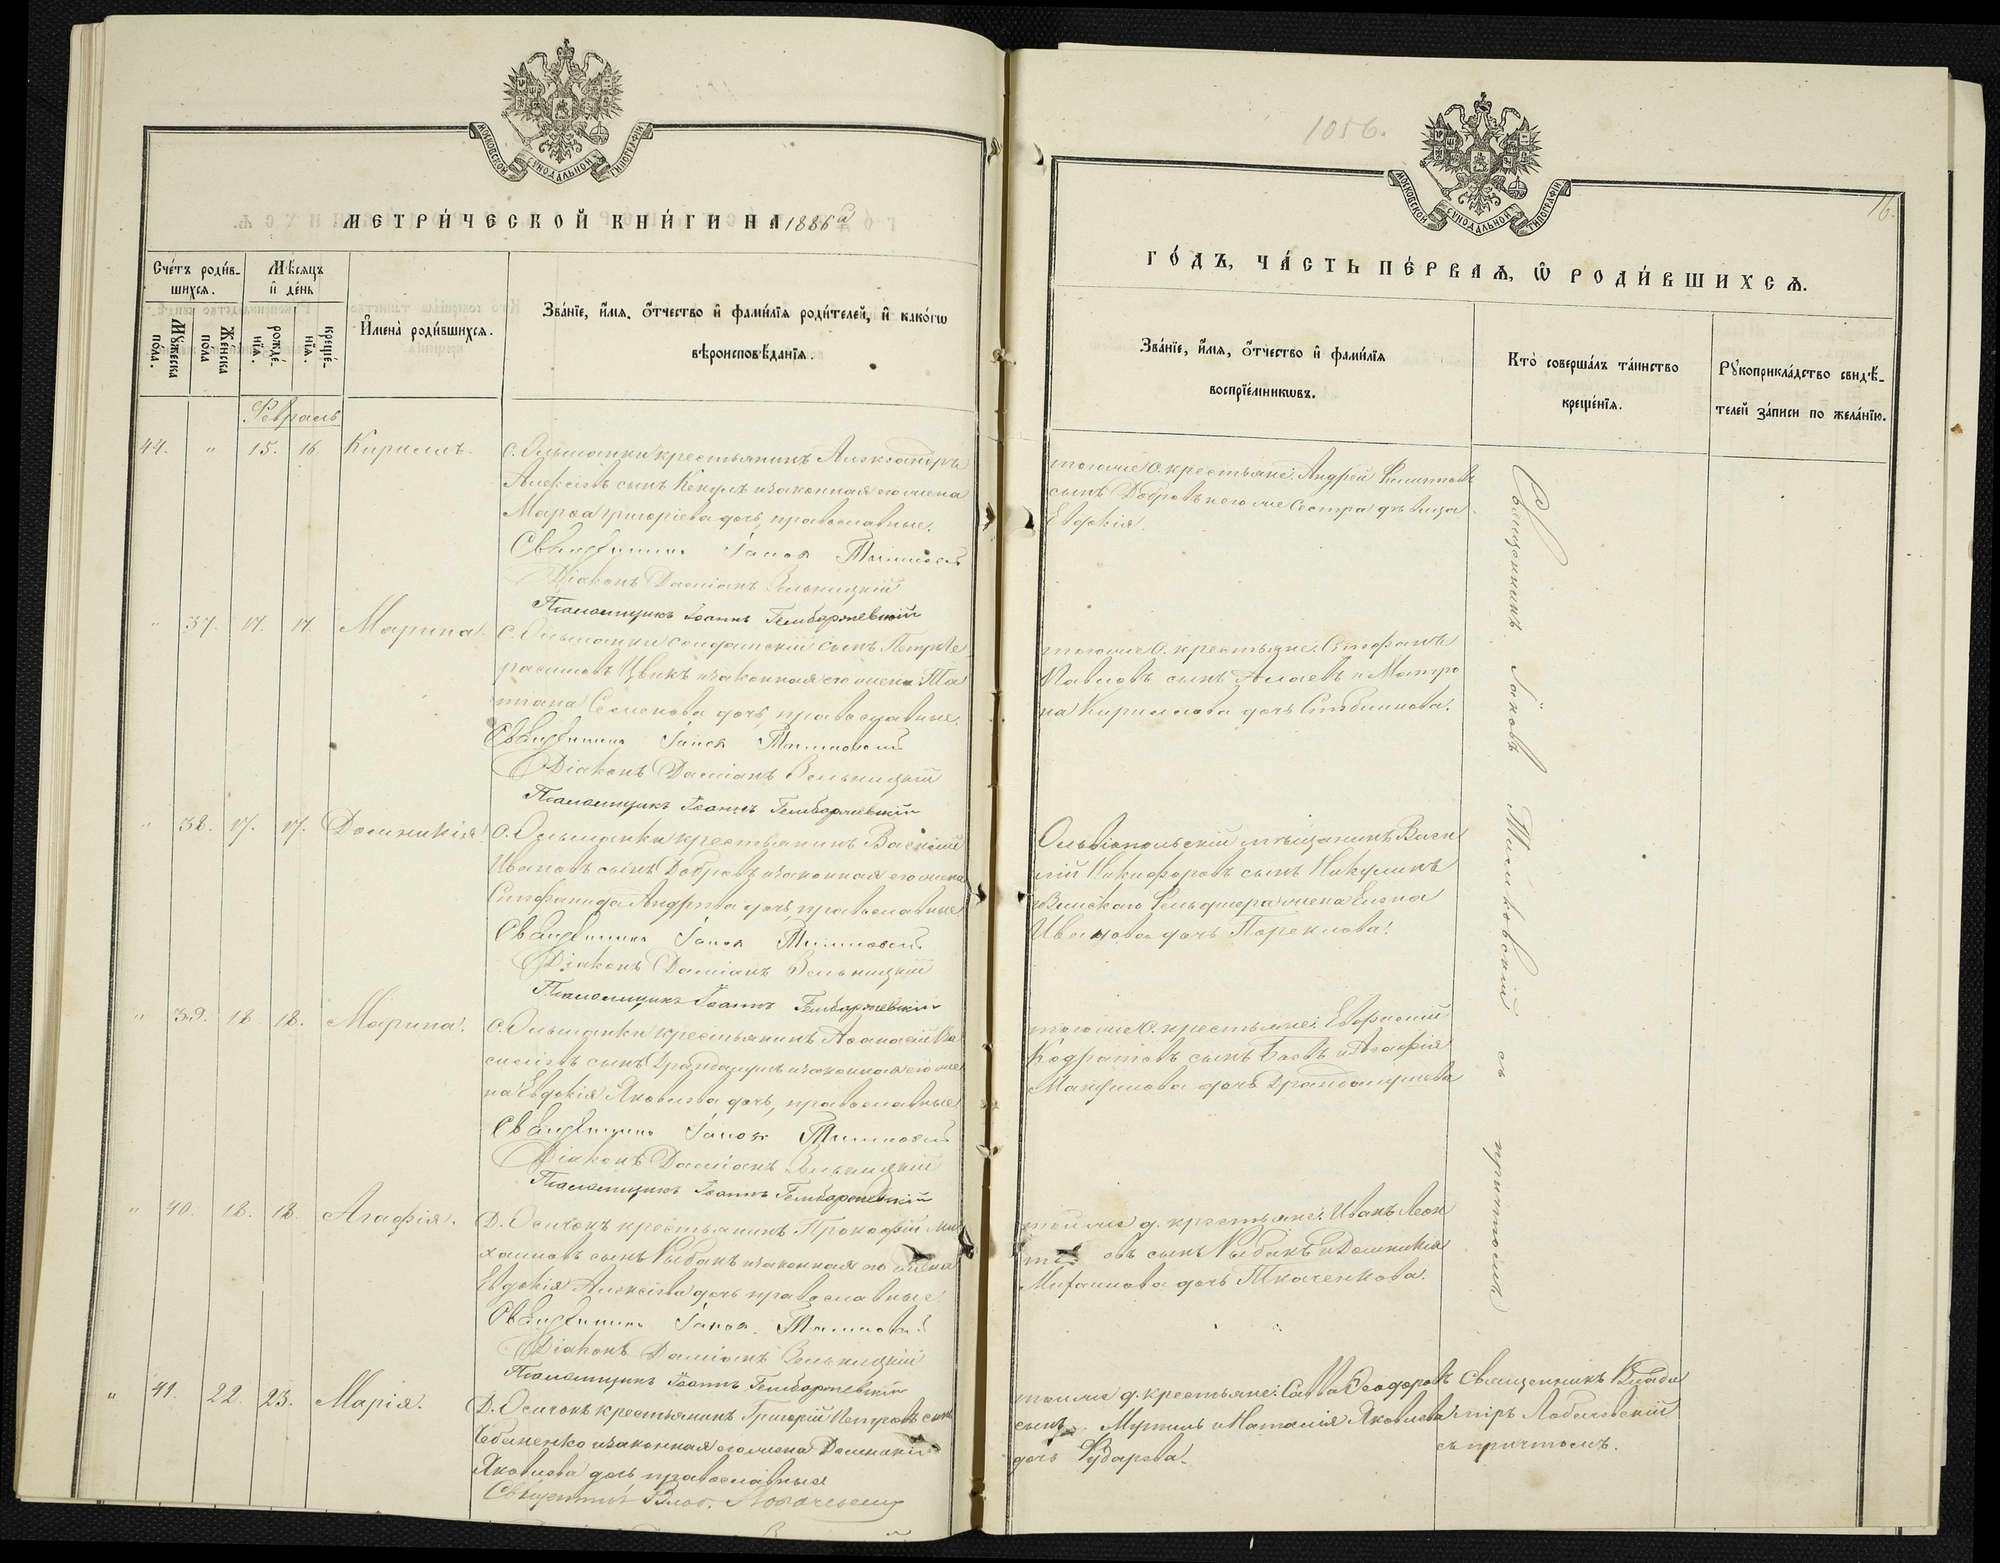 МОСКОВСКОЙ СУНОДАЛЬНОЙ ТИПОГРАФІИ
МЕТРИ́ЧЕСКОЙ КНИ́ГИ НА 1886й
Сче́тъ роди́в-
шихся.
Мѣ́сяцъ
и҆ де́нь
Мꙋ́жеска по́ла.
Же́нска по́ла
рожде́-
нїѧ.
креще́-
нїѧ.
И҆мена̀ роди́вшихсѧ.
Зва́нїе, и҆́мѧ, ѻ҆́тчество и҆ фами́лїѧ роди́телей, и҆ како́гѡ
вѣроисповѣ́данїѧ.
Февраль
44. " 15. 16 Кириллъ.
с. Ольшанки крестьянинъ Александръ
Алексѣевъ сынъ Кекулъ и законная его жена
Марѳа Григоріева дочь, православные.
Священникъ Іаковъ Тимковскій
Діаконъ Даміанъ Зельницкій
Псаломщикъ Іоаннъ Гембаржевскій
" 37. 17. 17. Марина.
с. Ольшанки солдатскій сынъ Петръ Ге
расимовъ Цвикъ и законная его жена Та
тіана Семенова дочь, православные.
Священникъ Іаковъ Тимковскій
Діаконъ Даміанъ Зельницкій
Псаломщикъ Іоаннъ Гембаржевскій
" 38. 17. 17. Домникія.
с. Ольшанки крестьянинъ Василій
Ивановъ сынъ Добровъ и законная его жена
Стефанида Андреева дочь, православные
Священникъ Іаковъ Тимковскій
Діаконъ Даміанъ Зельницкій
Псаломщикъ Іоаннъ Гембаржевскій
" 39. 18 18. Марина.
с. Ольшанки крестьянинъ Аѳанасій Ва
силіевъ сынъ и законная его же
на Евдокія Яковлева дочь, православные
Священникъ Іаковъ Тимковскій
Діаконъ Даміанъ Зельницкій
Псаломщикъ Іоаннъ Гембаржевскій
" 40. 18. 18. Агафія.
Д. Осичокъ крестьянинъ Прокофій Ми
хаиловъ сынъ Рыбакъ и законная его жена
Евдокія Алексѣева дочь православные
Священникъ Іаковъ Тимковскій
Діаконъ Даміанъ Зельницкій
Псаломщикъ Іоаннъ Гембаржевскій
" 41. 22. 23. Марія.
Д. Осичокъ крестьянинъ Григорій Петровъ сынъ
и законная его жена Домникія
Яковлева дочь православные
Священникъ Влад. Лобачевскій
1056.
16.
МОСКОВСКОЙ СУНОДАЛЬНОЙ ТИПОГРАФІИ
ГО́ДЪ, ЧА́СТЬ ПЕ́РВАѦ, Ѡ҆ РОДИ́ВШИХСѦ.
Зва́нїе, и҆́мѧ, ѻ҆́тчество и҆ фами́лїѧ
воспрїе́мникѡвъ.
Кто̀ соверша́лъ та́инство
креще́нїѧ.
Рꙋкоприкла́дство свидѣ́-
телей за́писи по жела́нїю.
тогоже с. крестьяне: Андрей Филиповъ
сынъ Добровъ и его же сестра дѣвица
Евдокія.
тогоже с. крестьяне: Стефанъ
Павловъ сынъ и Матро
на Кириллова дочь
Ольвіопольскій мѣщанинъ Васи
лій Никифоровъ сынъ Никулинъ
фельдшера жена Елена
Иванова дочь
тогоже с. крестьяне: Евфимій
Кодратовъ сынъ и Агафія
дочь
тойже д. крестьяне: Иванъ Леон
те овъ сынъ Рыбакъ и Домникія
Михаилова дочь Ткаченкова.
тойже д. крестьяне: Савва Ѳеодоровъ
сынъ и Наталія Яковлева
дочь
Священникъ Іаковъ Тимковскій съ причтомъ
Священникъ Влади
міръ Лобачевскій
съ причтомъ.